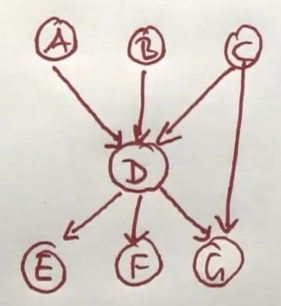 A B C
D
E F G